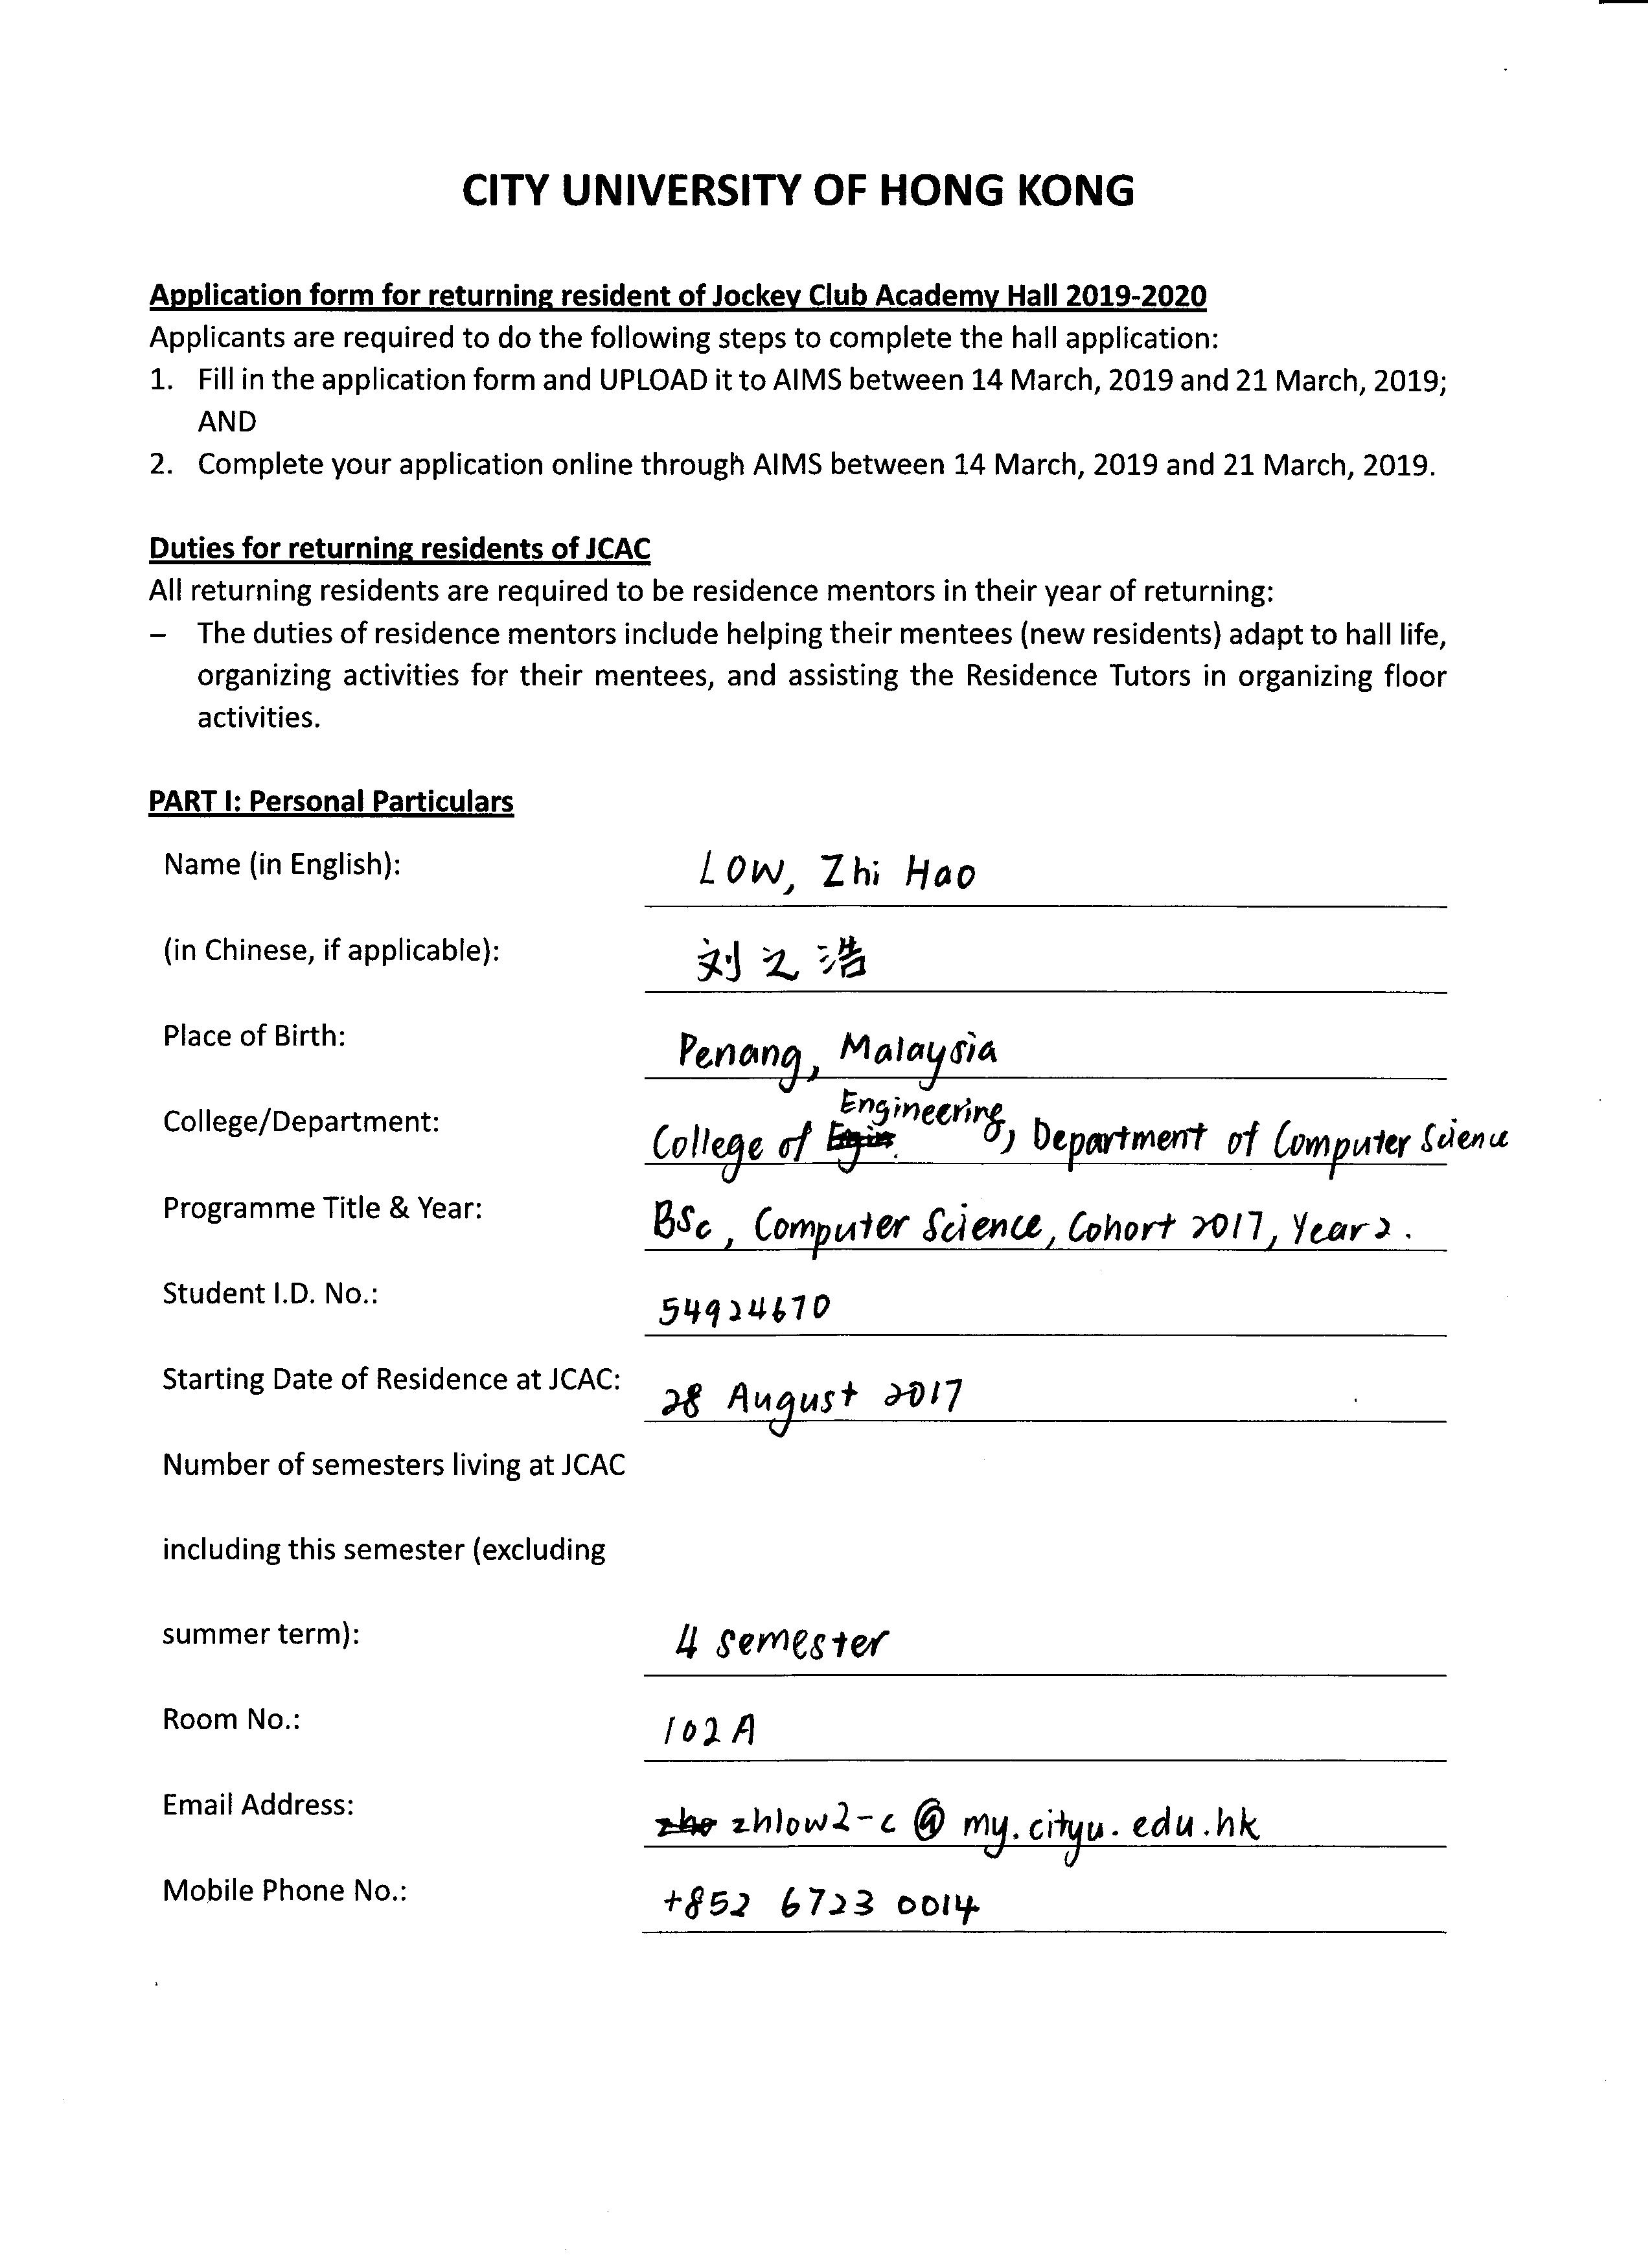 CITY UNIVERSITY OF HONG KONG
Application form for returning resident of Jockey Club Academy Hall 2019-2020
Applicants are required to do the following steps to complete the hall application:
1. Fill in the application form and UPLOAD it to AIMS between 14 March, 2019 and 21 March, 2019;
AND
2. Complete your application online through AIMS between 14 March, 2019 and 21 March, 2019.
Duties for returning residents of JCAC
All returning residents are required to be residence mentors in their year of returning:
– The duties of residence mentors include helping their mentees (new residents) adapt to hall life,
organizing activities for their mentees, and assisting the Residence Tutors in organizing floor
activities.
PART I: Personal Particulars
Name (in English): LOW, Zhi Hao
(in Chinese, if applicable): 刘之浩
Place of Birth: Penang, Malaysia
College/Department: College of Engineering, Department of Computer Science
Programme Title & Year: BSc, Computer Science, Cohort 2017, Year 2.
Student I.D. No.: 54924670
Starting Date of Residence at JCAC: 28 August 2017
Number of semesters living at JCAC
including this semester (excluding
summer term): 4 semester
Room No.: 102A
Email Address: zhlow2-c@my.cityu.edu.hk
Mobile Phone No.: +852 6723 0014